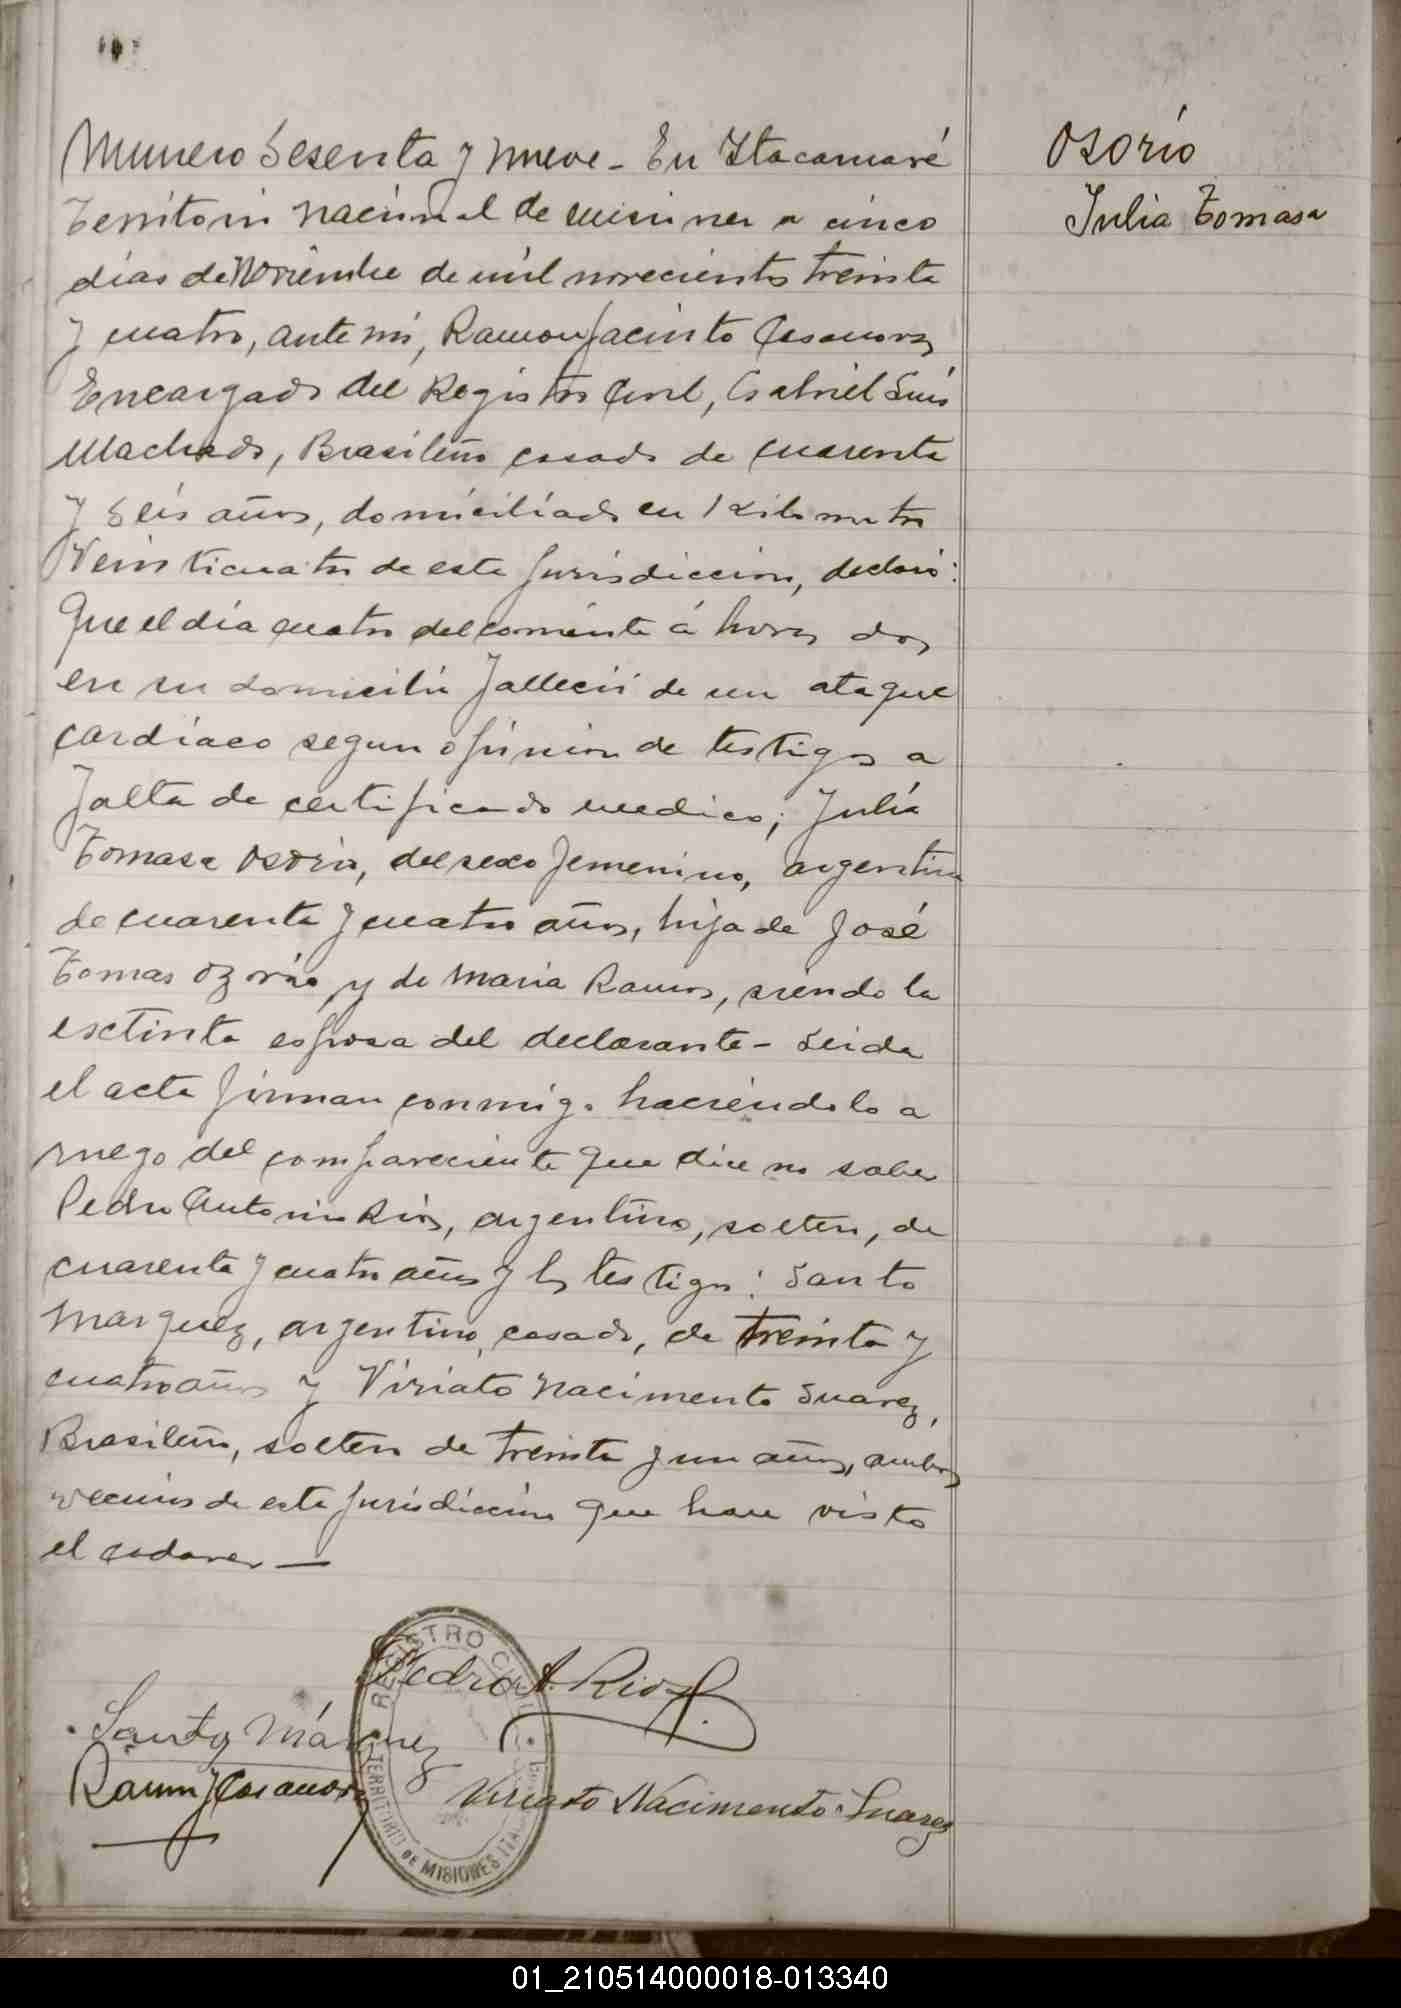 Numero Sesenta y nueve - En Itacaruaré
Territorio nacional de Misiones a cinco
días de Noviembre de mil novecientos treinta
y cuatro, ante mi, Ramon Jacinto Casanova
Encargado del Registro Civil, Gabriel Luis
Machado, Brasileño casado de cuarenta
y seis años, domiciliado en Kilometro
Veinticuatro de esta Jurisdiccion, declaró:
Que el día cuatro del corriente á horas dos
en su domicilio falleció de un ataque
cardíaco segun opinion de testigos a
falta de certificado medico; Julia
Tomasa Osorio, del sexo femenino, argentina
de cuarenta y cuatro años, hija de José
Tomas Ozorio y de Maria Ramos, siendo la
esctinta esposa del declarante - Leida
el acta firman conmigo haciendolo a
ruego del compareciente que dice no saber
Pedro Antonio Rios, argentino, soltero, de
cuarenta y cuatro años y los testigos: Santo
Marquez, argentino, casado, de treinta y
cuatro años y Viriato Nacimento Suarez,
Brasileño, soltero de treinta y un años, ambos
vecinos de esta Jurisdiccion que han visto
el cadaver —
Osorio
Julia Tomasa
Pedro A. Rios
Santos Márquez
Ramon J Casanova
Viriato Nacimento Suarez
REGISTRO CIVIL
TERRITORIO DE MISIONES
01_210514000018-013340